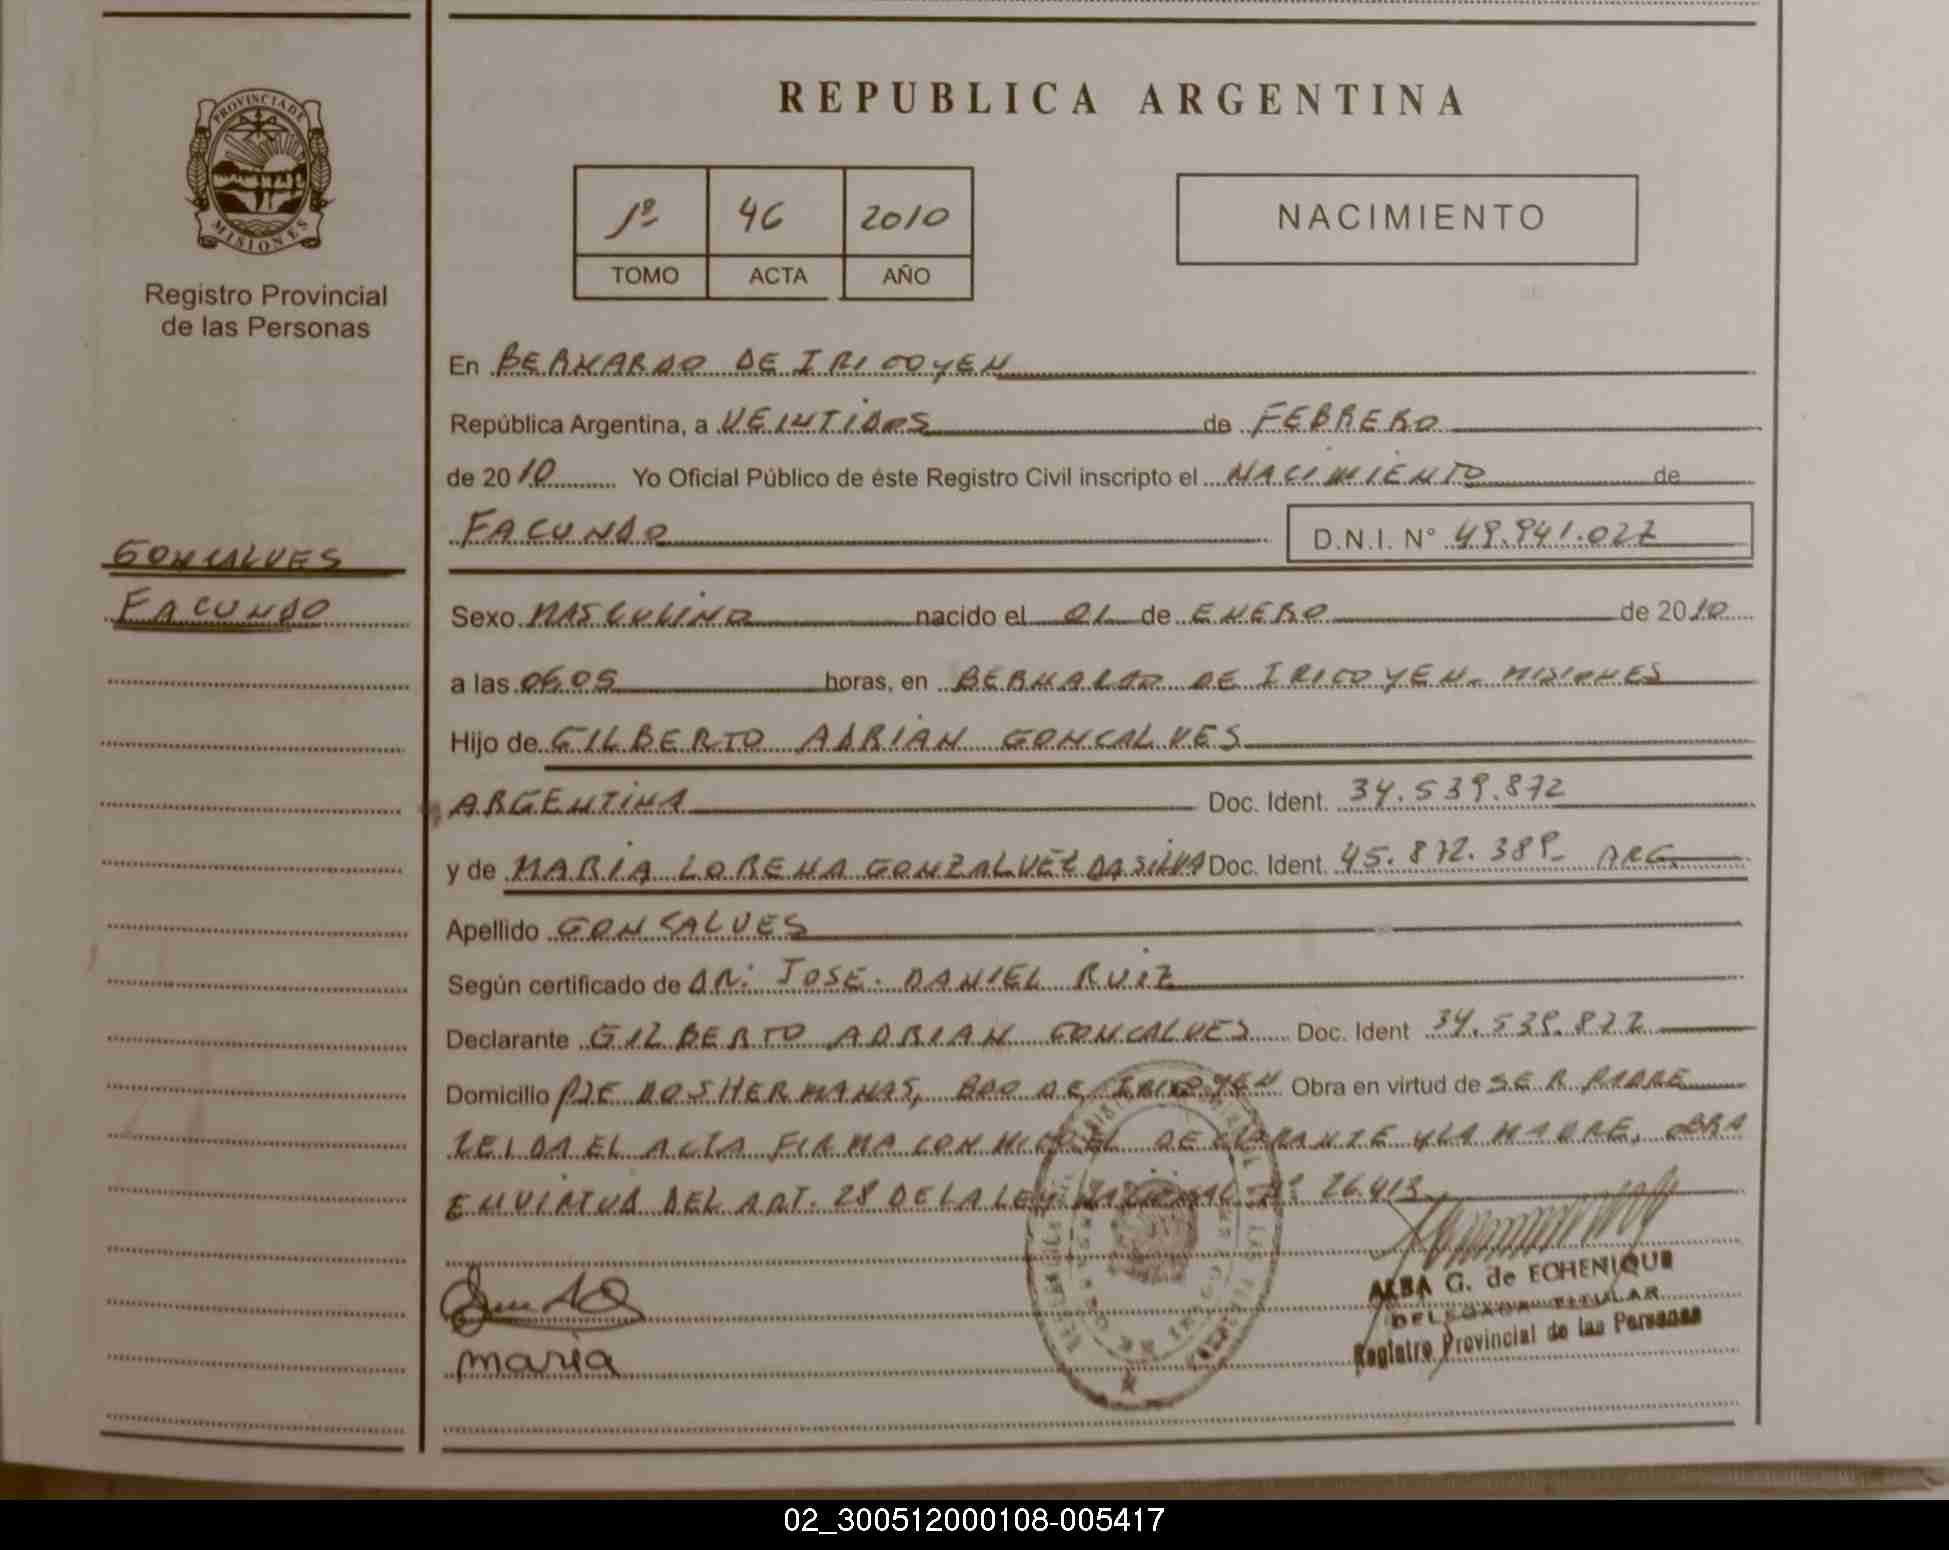 REPUBLICA ARGENTINA
PROVINCIA DE
MISIONES
Registro Provincial
de las Personas
1º 46 2010
TOMO ACTA AÑO
NACIMIENTO
En BERNARDO DE IRIGOYEN
República Argentina, a VEINTIDOS de FEBRERO
de 2010 Yo Oficial Público de éste Registro Civil inscripto el NACIMIENTO de
FACUNDO D.N.I. N° 49.941.027
GONCALVES
FACUNDO
Sexo MASCULINO nacido el 01 de ENERO de 2010
a las 06.05 horas, en BERNARDO DE IRIGOYEN - MISIONES
Hijo de GILBERTO ADRIAN GONCALVES
ARGENTINA Doc. Ident. 34.539.872
y de MARIA LORENA GONZALVEZ DA SILVA Doc. Ident. 45.872.389 - ARG.
Apellido GONCALVES
Según certificado de DR: JOSE DANIEL RUIZ
Declarante GILBERTO ADRIAN GONCALVES Doc. Ident 34.539.872
Domicilio PJE DOS HERMANAS, BDO DE IRIGOYEN Obra en virtud de SER PADRE
LEIDA EL ACTA FIRMA CONMIGO EL DECLARANTE Y LA MADRE, OBRA
EN VIRTUD DEL ART. 28 DE LA LEY NACIONAL Nº 26.413
maria
ALBA G. de ECHENIQUE
DELEGADA TITULAR
Registro Provincial de las Personas
02_300512000108-005417